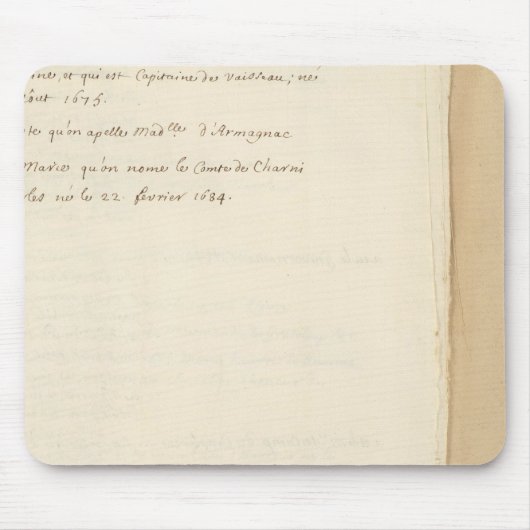 ine, et qui est Capitaine de vaisseau; né
oust 1675.
te qu'on apelle Mad.lle d'Armagnac
Marie qu'on nome le Comte de Charni
les né le 22. fevrier 1684.